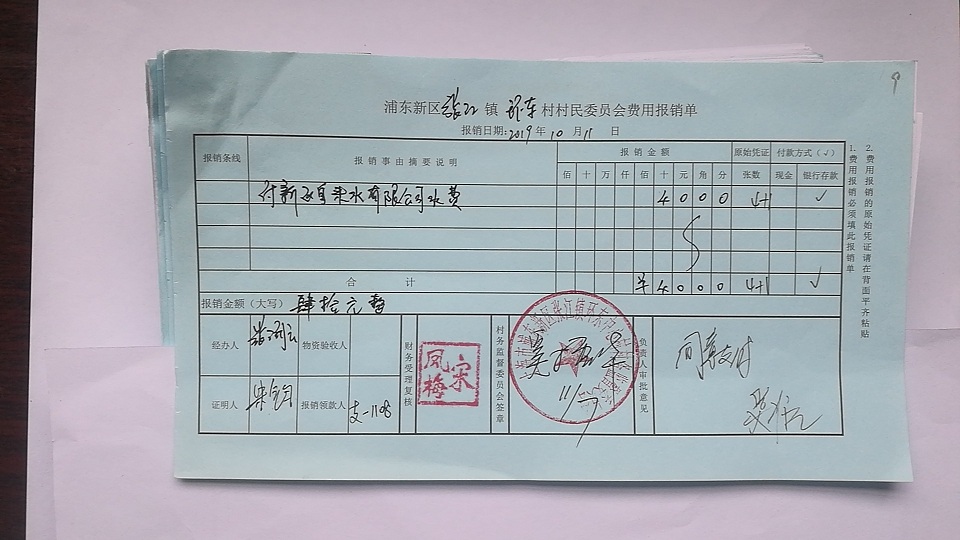 9
浦东新区张江镇环东村村民委员会费用报销单
报销日期:2019年10月11日
报销条线 报销事由摘要说明 报销金额 原始凭证 付款方式(√)
佰 十 万 仟 佰 十 元 角 分 张数 现金 银行存款
付新 泉水有限公司水费 4 0 0 0 √
合 计 ¥ 4 0 0 0 √
报销金额(大写) 肆拾元整
经办人 物资验收人
证明人 报销领款人 支-1108
财务受理复核
宋凤梅
村务监督委员会签章
11/
负责人审批意见
同意支付
1.费用报销必须填此报销单
2.费用报销的原始凭证请在背面平齐粘贴